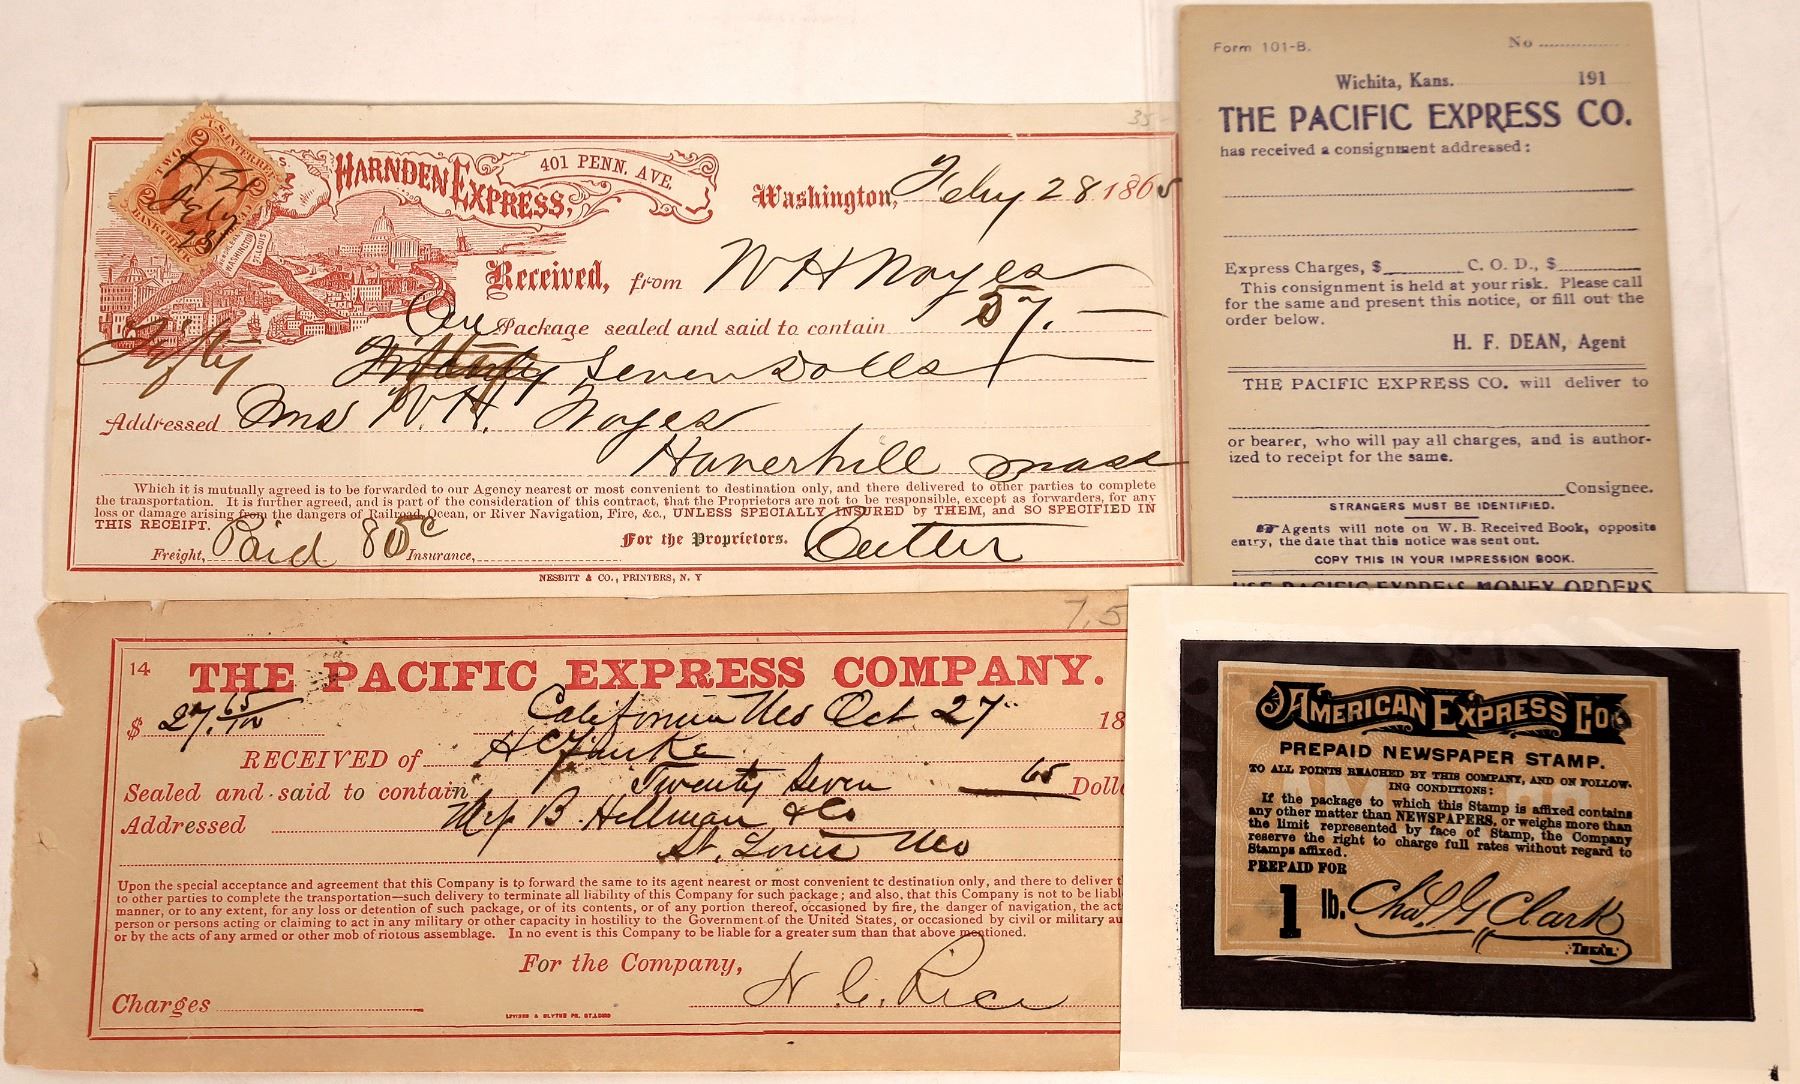 35-
TWO 2 U.S. INTER. RE
2 BANK CHECK
H E
Feby
28
HARNDEN EXPRESS,
401 PENN. AVE.
WASHINGTON
ST. LOUIS
Washington, Feby 28 1865
Received, from W H Noyes
One Package sealed and said to contain 57.
Fifty Seven Dolls
Addressed Mrs W. H. Noyes
Haverhill Mass
Which it is mutually agreed is to be forwarded to our Agency nearest or most convenient to destination only, and there delivered to other parties to complete
the transportation. It is further agreed, and is part of the consideration of this contract, that the Proprietors are not to be responsible, except as forwarders, for any
loss or damage arising from the dangers of Railroad, Ocean, or River Navigation, Fire, &c., UNLESS SPECIALLY INSURED by THEM, and SO SPECIFIED IN
THIS RECEIPT.
For the Proprietors. Cutter
Freight, Paid 80c Insurance,
NESBITT & CO., PRINTERS, N. Y
Form 101-B. No
Wichita, Kans. 191
THE PACIFIC EXPRESS CO.
has received a consignment addressed:
Express Charges, $ C. O. D., $
This consignment is held at your risk. Please call
for the same and present this notice, or fill out the
order below.
H. F. DEAN, Agent
THE PACIFIC EXPRESS CO. will deliver to
or bearer, who will pay all charges, and is author-
ized to receipt for the same.
Consignee.
STRANGERS MUST BE IDENTIFIED.
Agents will note on W. B. Received Book, opposite
entry, the date that this notice was sent out.
COPY THIS IN YOUR IMPRESSION BOOK.
USE PACIFIC EXPRESS MONEY ORDERS
7,5
14
THE PACIFIC EXPRESS COMPANY.
$ 27.65/100 California Mo Oct 27 18
RECEIVED of
Sealed and said to contain Twenty Seven 65 Doll
Addressed B. Hellman & Co
St. Louis Mo
Upon the special acceptance and agreement that this Company is to forward the same to its agent nearest or most convenient to destination only, and there to deliver t
to other parties to complete the transportation—such delivery to terminate all liability of this Company for such package; and also, that this Company is not to be liabl
manner, or to any extent, for any loss or detention of such package, or of its contents, or of any portion thereof, occasioned by fire, the danger of navigation, the act
person or persons acting or claiming to act in any military or other capacity in hostility to the Government of the United States, or occasioned by civil or military au
or by the acts of any armed or other mob of riotous assemblage. In no event is this Company to be liable for a greater sum than that above mentioned.
For the Company,
N. C. Rice
Charges
AMERICAN EXPRESS CO
PREPAID NEWSPAPER STAMP.
TO ALL POINTS REACHED BY THIS COMPANY, AND ON FOLLOW-
ING CONDITIONS:
If the package to which this Stamp is affixed contains
any other matter than NEWSPAPERS, or weighs more than
the limit represented by face of Stamp, the Company
reserve the right to charge full rates without regard to
Stamps affixed.
PREPAID FOR
1 lb. Chas. G. Clark
TREAS.